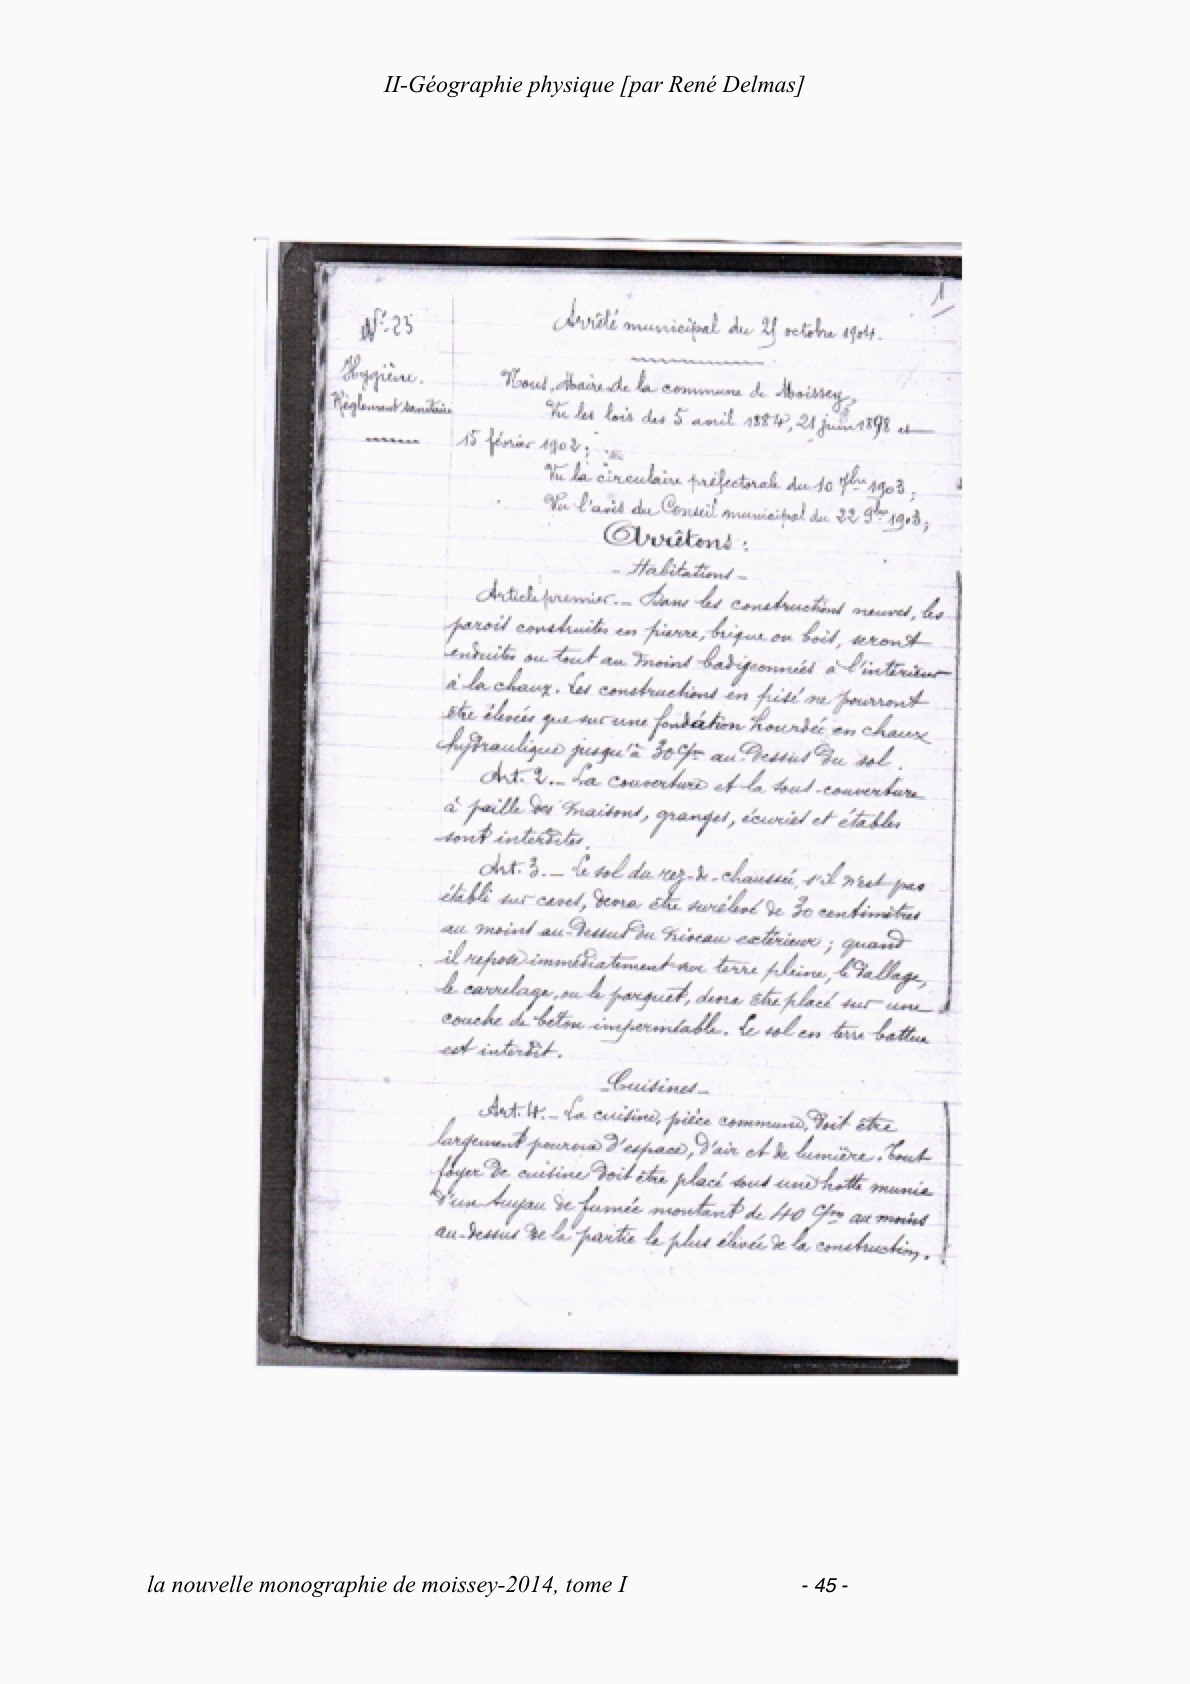 II-Géographie physique [par René Delmas]
1
N° 23
Hygiène.
Règlement sanitaire
Arrêté municipal du octobre 1904.
Nous, Maire de la commune de Moissey,
Vu les lois des 5 avril 1884, 21 juin 1898 et
15 février 1902 ;
Vu la circulaire préfectorale du 10 7bre 1903 ;
Vu l'avis du Conseil municipal du 22 9bre 1903 ;
Arrêtons :
- Habitations -
Article premier. - Dans les constructions neuves, les
parois construites en pierre, brique ou bois, seront
enduites ou tout au moins badigeonnées à l'intérieur
à la chaux. Les constructions en pisé ne pourront
être élevées que sur une fondation hourdée en chaux
hydraulique jusqu'à 30 c/m au-dessus du sol.
Art. 2. - La couverture et la sous-couverture
à paille des maisons, granges, écuries et étables
sont interdites.
Art. 3. - Le sol du rez-de-chaussée, s'il n'est pas
établi sur caves, devra être surélevé de 30 centimètres
au moins au-dessus du niveau extérieur ; quand
il repose immédiatement sur terre pleine, le dallage,
le carrelage, ou le parquet, devra être placé sur une
couche de béton imperméable. Le sol en terre battue
est interdit.
- Cuisines -
Art. 4. - La cuisine, pièce commune, doit être
largement pourvue d'espace, d'air et de lumière. Tout
foyer de cuisine doit être placé sous une hotte munie
d'un tuyau de fumée montant de 40 c/m au moins
au-dessus de la partie la plus élevée de la construction.
la nouvelle monographie de moissey-2014, tome I
- 45 -